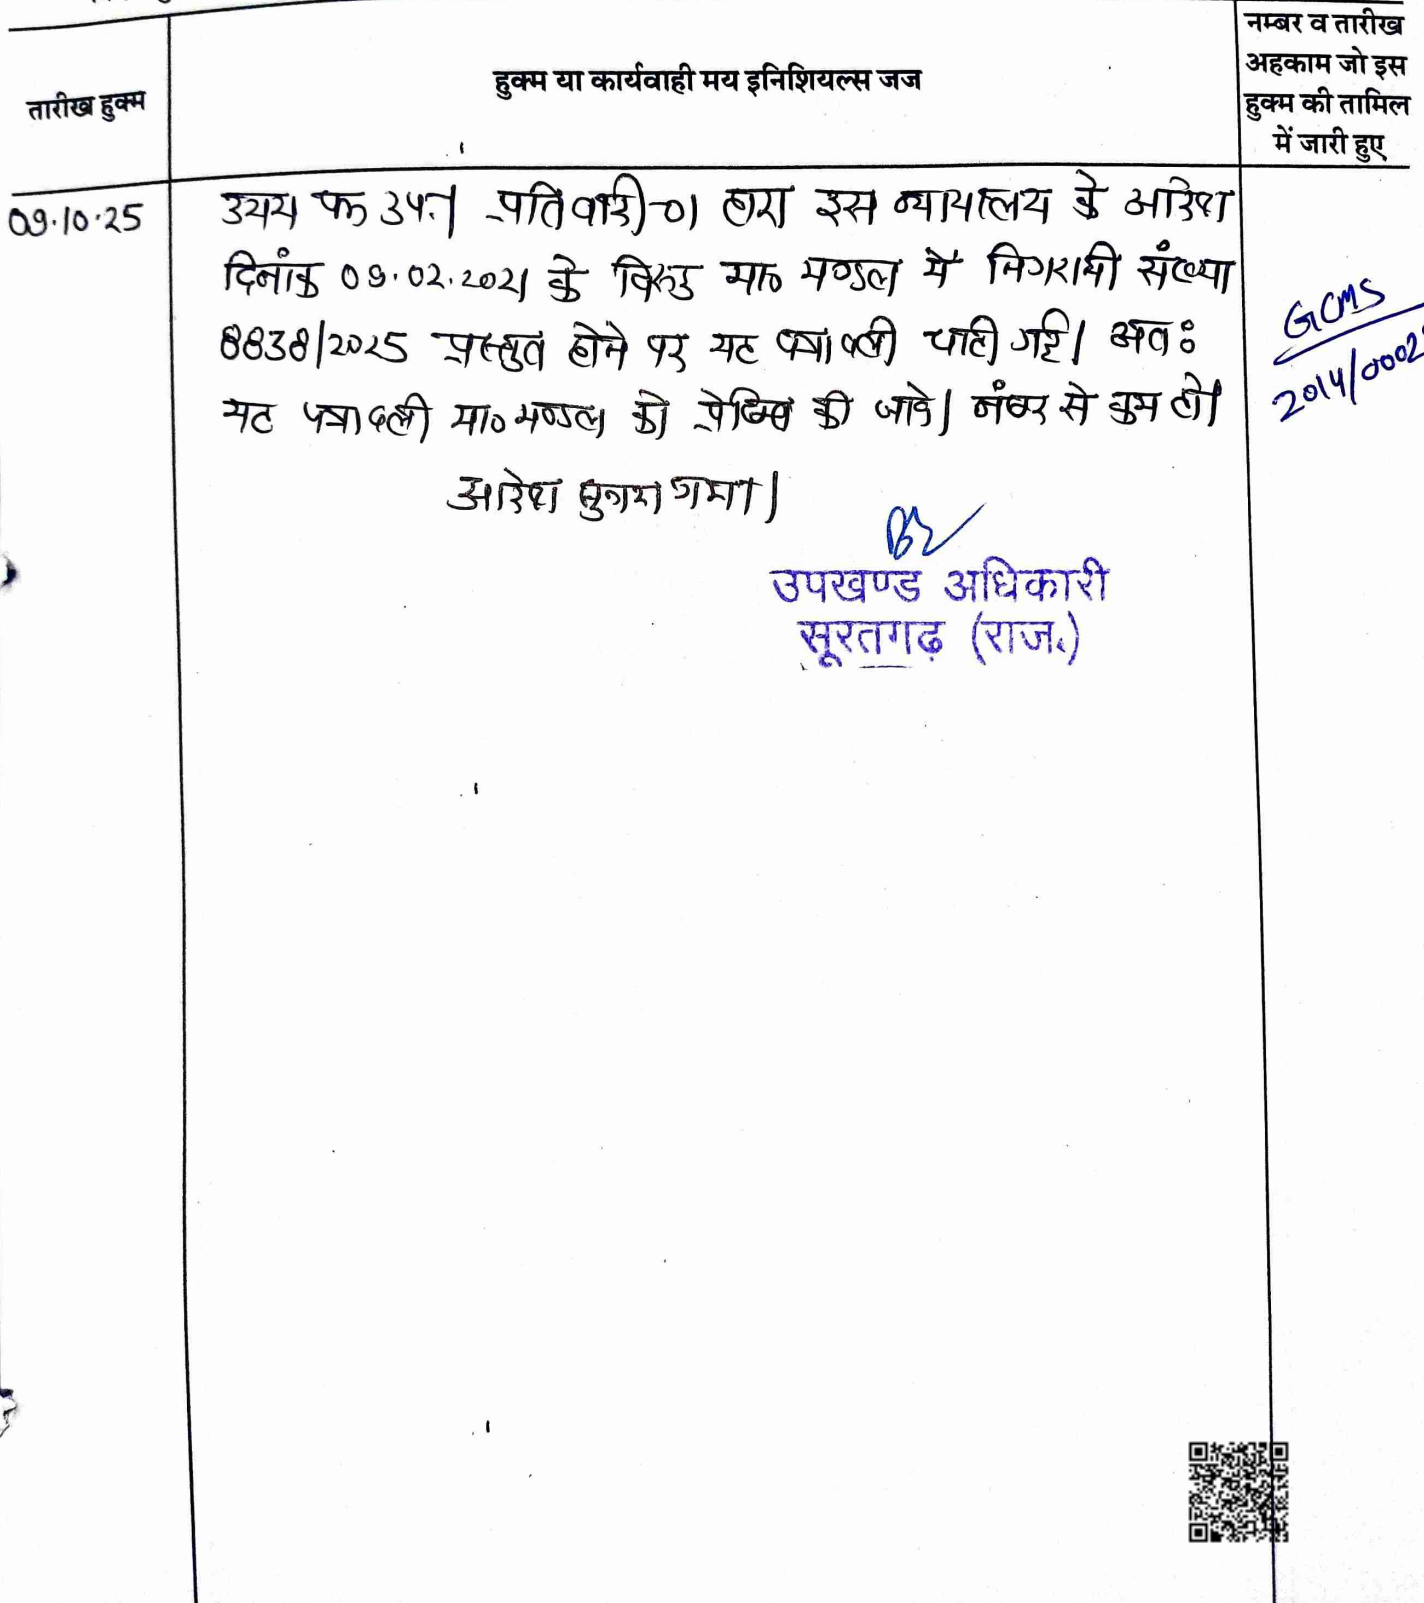 तारीख हुक्म
हुक्म या कार्यवाही मय इनिशियल्स जज
नम्बर व तारीख
अहकाम जो इस
हुक्म की तामिल
में जारी हुए
09.10.25
उभय पक्ष उप.। प्रतिवादी-01 द्वारा इस न्यायालय के आदेश
दिनांक 09.02.2021 के विरुद्ध मा० मण्डल में निगरानी संख्या
8838/2025 प्रस्तुत होने पर यह पत्रावली चाही गई। अतः
यह पत्रावली मा० मण्डल को प्रेषित की जावे। नंबर से कम हो।
आदेश सुनाया गया।
GCMS
2014/0002
उपखण्ड अधिकारी
सूरतगढ़ (राज.)